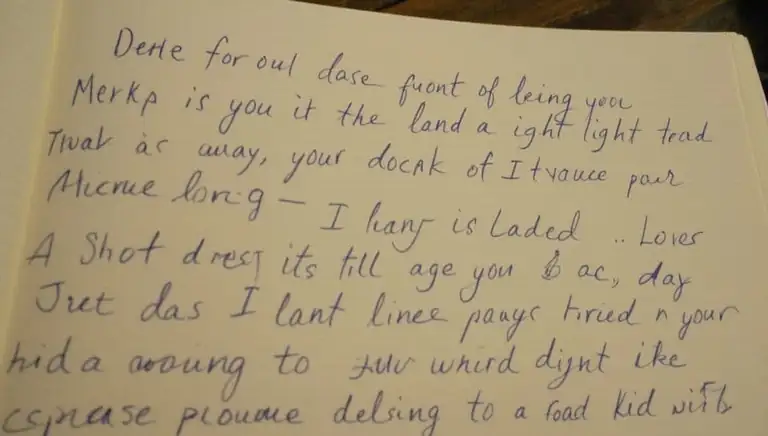 Derle for oul dase front of leing you
Merkp is you it the land a ight light tead
Twat ac auay, your docak of I tvauce paur
long — I hanf is Laded .. Lover
A Shot drest its till age you ac, day
Jret das I lant linee paays tiried n your
hid a to whird dijnt ike
ploume delsing to a road kid with